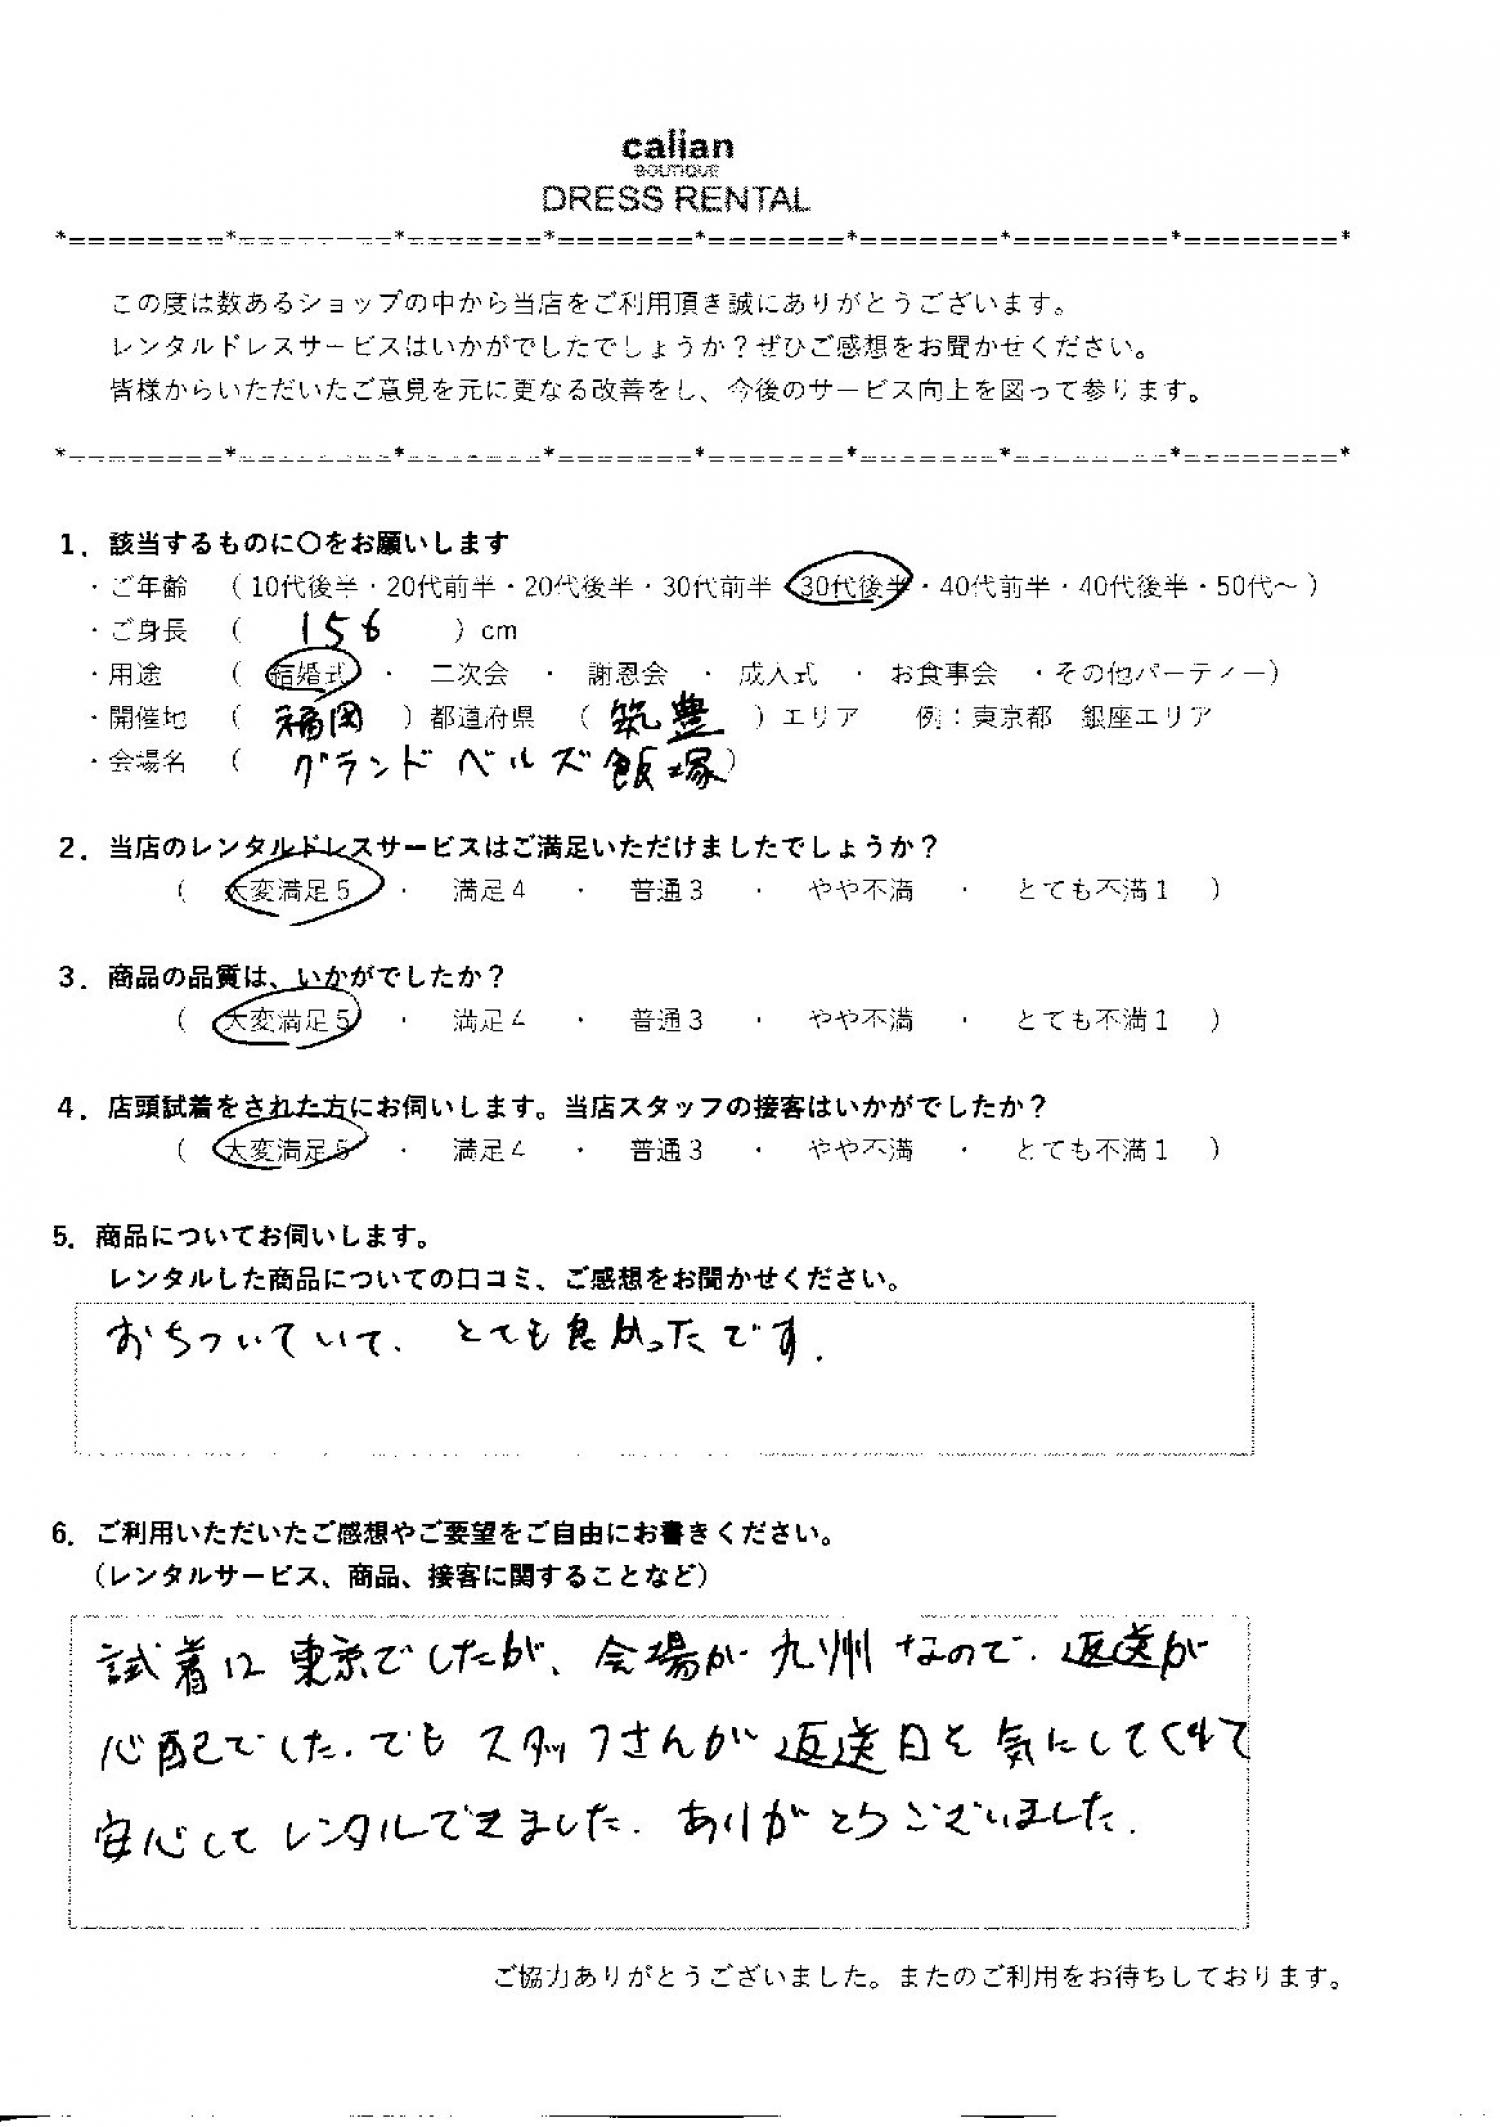 calian
BOUTIQUE
DRESS RENTAL
*========*========*=======*=======*=======*=======*========*========*
この度は数あるショップの中から当店をご利用頂き誠にありがとうございます。
レンタルドレスサービスはいかがでしたでしょうか？ぜひご感想をお聞かせください。
皆様からいただいたご意見を元に更なる改善をし、今後のサービス向上を図って参ります。
*========*========*=======*=======*=======*=======*========*========*
1．該当するものに〇をお願いします
・ご年齢 （10代後半・20代前半・20代後半・30代前半・30代後半・40代前半・40代後半・50代～）
・ご身長 （ 156 ）cm
・用途 （ 結婚式 ・ 二次会 ・ 謝恩会 ・ 成人式 ・ お食事会 ・その他パーティー）
・開催地 （ 福岡 ）都道府県 （ 筑豊 ）エリア 例：東京都 銀座エリア
・会場名 （ グランドベルズ飯塚）
2．当店のレンタルドレスサービスはご満足いただけましたでしょうか？
（ 大変満足5 ・ 満足4 ・ 普通3 ・ やや不満 ・ とても不満1 ）
3．商品の品質は、いかがでしたか？
（ 大変満足5 ・ 満足4 ・ 普通3 ・ やや不満 ・ とても不満1 ）
4．店頭試着をされた方にお伺いします。当店スタッフの接客はいかがでしたか？
（ 大変満足5 ・ 満足4 ・ 普通3 ・ やや不満 ・ とても不満1 ）
5．商品についてお伺いします。
レンタルした商品についての口コミ、ご感想をお聞かせください。
おちついていて、とても良かったです.
6．ご利用いただいたご感想やご要望をご自由にお書きください。
（レンタルサービス、商品、接客に関することなど）
試着は東京でしたが、会場が九州なので、返送が
心配でした. でもスタッフさんが返送日を気にしてくれて
安心してレンタルできました. ありがとうございました.
ご協力ありがとうございました。またのご利用をお待ちしております。